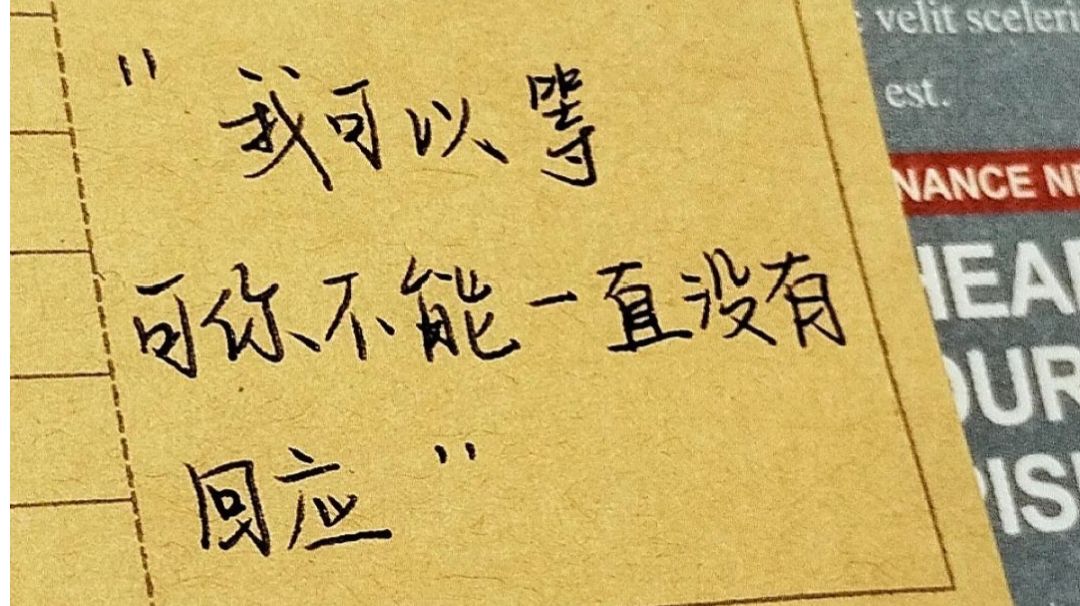 "我可以等
可你不能一直没有
回应"
velit sceleri
est.
NANCE NE
HEAD
OUR